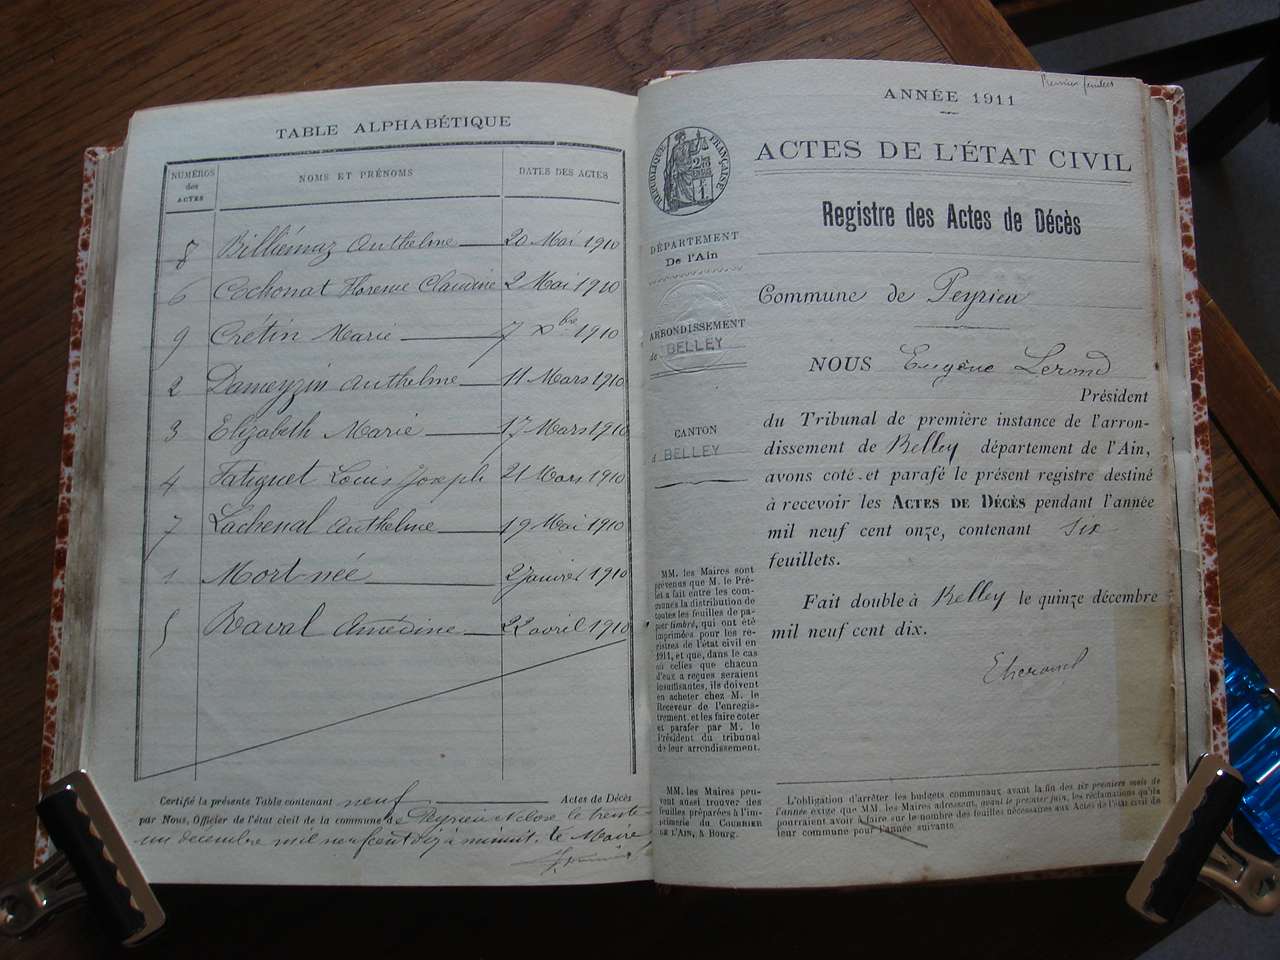 TABLE ALPHABÉTIQUE
NUMÉROS des ACTES NOMS ET PRÉNOMS DATES DES ACTES
8 Billiémaz Anthelme 20 Mai 1910
6 Cochonat Florence Claudine 2 Mai 1910
9 Crétin Marie 7 Xbre 1910
2 Dameyzin Anthelme 11 Mars 1910
3 Elizabeth Marie 17 Mars 1910
4 Fatiguet Louis Joseph 21 Mars 1910
7 Lachenal Anthelme 19 Mai 1910
1 Mort-née 2 Janvier 1910
5 Raval Amédine 22 avril 1910
Certifié la présente Table contenant neuf Actes de Décès
par Nous, Officier de l'état civil de la commune de Peyrieu & close le trente
un decembre mil neuf cent dix à minuit. Le Maire
Premier feuillet
ANNÉE 1911
ACTES DE L'ÉTAT CIVIL
RÉPUBLIQUE FRANÇAISE
Registre des Actes de Décès
DÉPARTEMENT
De l'Ain
ARRONDISSEMENT
de BELLEY
CANTON
d BELLEY
Commune de Peyrieu
NOUS Eugène Lerond
Président
du Tribunal de première instance de l'arron-
dissement de Belley département de l'Ain,
avons coté et parafé le présent registre destiné
à recevoir les ACTES DE DÉCÈS pendant l'année
mil neuf cent onze, contenant six
feuillets.
Fait double à Belley le quinze décembre
mil neuf cent dix.
MM. les Maires sont
prévenus que M. le Pré-
fet a fait entre les com-
munes la distribution de
toutes les feuilles de pa-
pier timbré, qui ont été
imprimées pour les re-
gistres de l'état civil en
1911, et que, dans le cas
où celles que chacun
d'eux a reçues seraient
insuffisantes, ils doivent
en acheter chez M. le
Receveur de l'enregis-
trement et les faire coter
et parafer par M. le
Président du tribunal
de leur arrondissement.
MM. les Maires peu-
vent aussi trouver des
feuilles préparées à l'im-
primerie du COURRIER
DE L'AIN, à Bourg.
L'obligation d'arrêter les budgets communaux avant la fin des six premiers mois de
l'année exige que MM. les Maires adressent, avant le premier juin, les réclamations qu'ils
pourraient avoir à faire sur le nombre des feuilles nécessaires aux Actes de l'état civil de
leur commune pour l'année suivante.